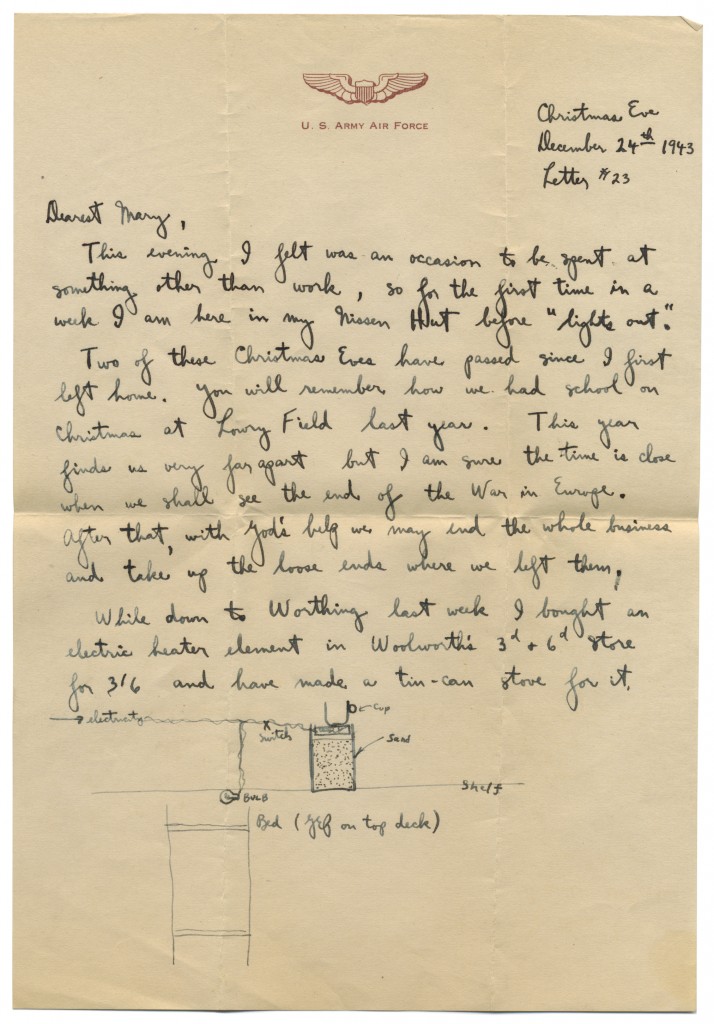 U. S. ARMY AIR FORCE
Christmas Eve
December 24th 1943
Letter #23
Dearest Mary,
This evening I felt was an occasion to be spent at
something other than work, so for the first time in a
week I am here in my Nissen Hut before "lights out".
Two of these Christmas Eves have passed since I first
left home. You will remember how we had school on
Christmas at Lowry Field last year. This year
finds us very far apart but I am sure the time is close
when we shall see the end of the War in Europe.
After that, with God's help we may end the whole business
and take up the loose ends where we left them.
While down to Worthing last week I bought an
electric heater element in Woolworth's 3d & 6d store
for 3/6 and have made a tin-can stove for it.
electricity
Cup
switch
Sand
Shelf
BULB
Bed ( on top deck)